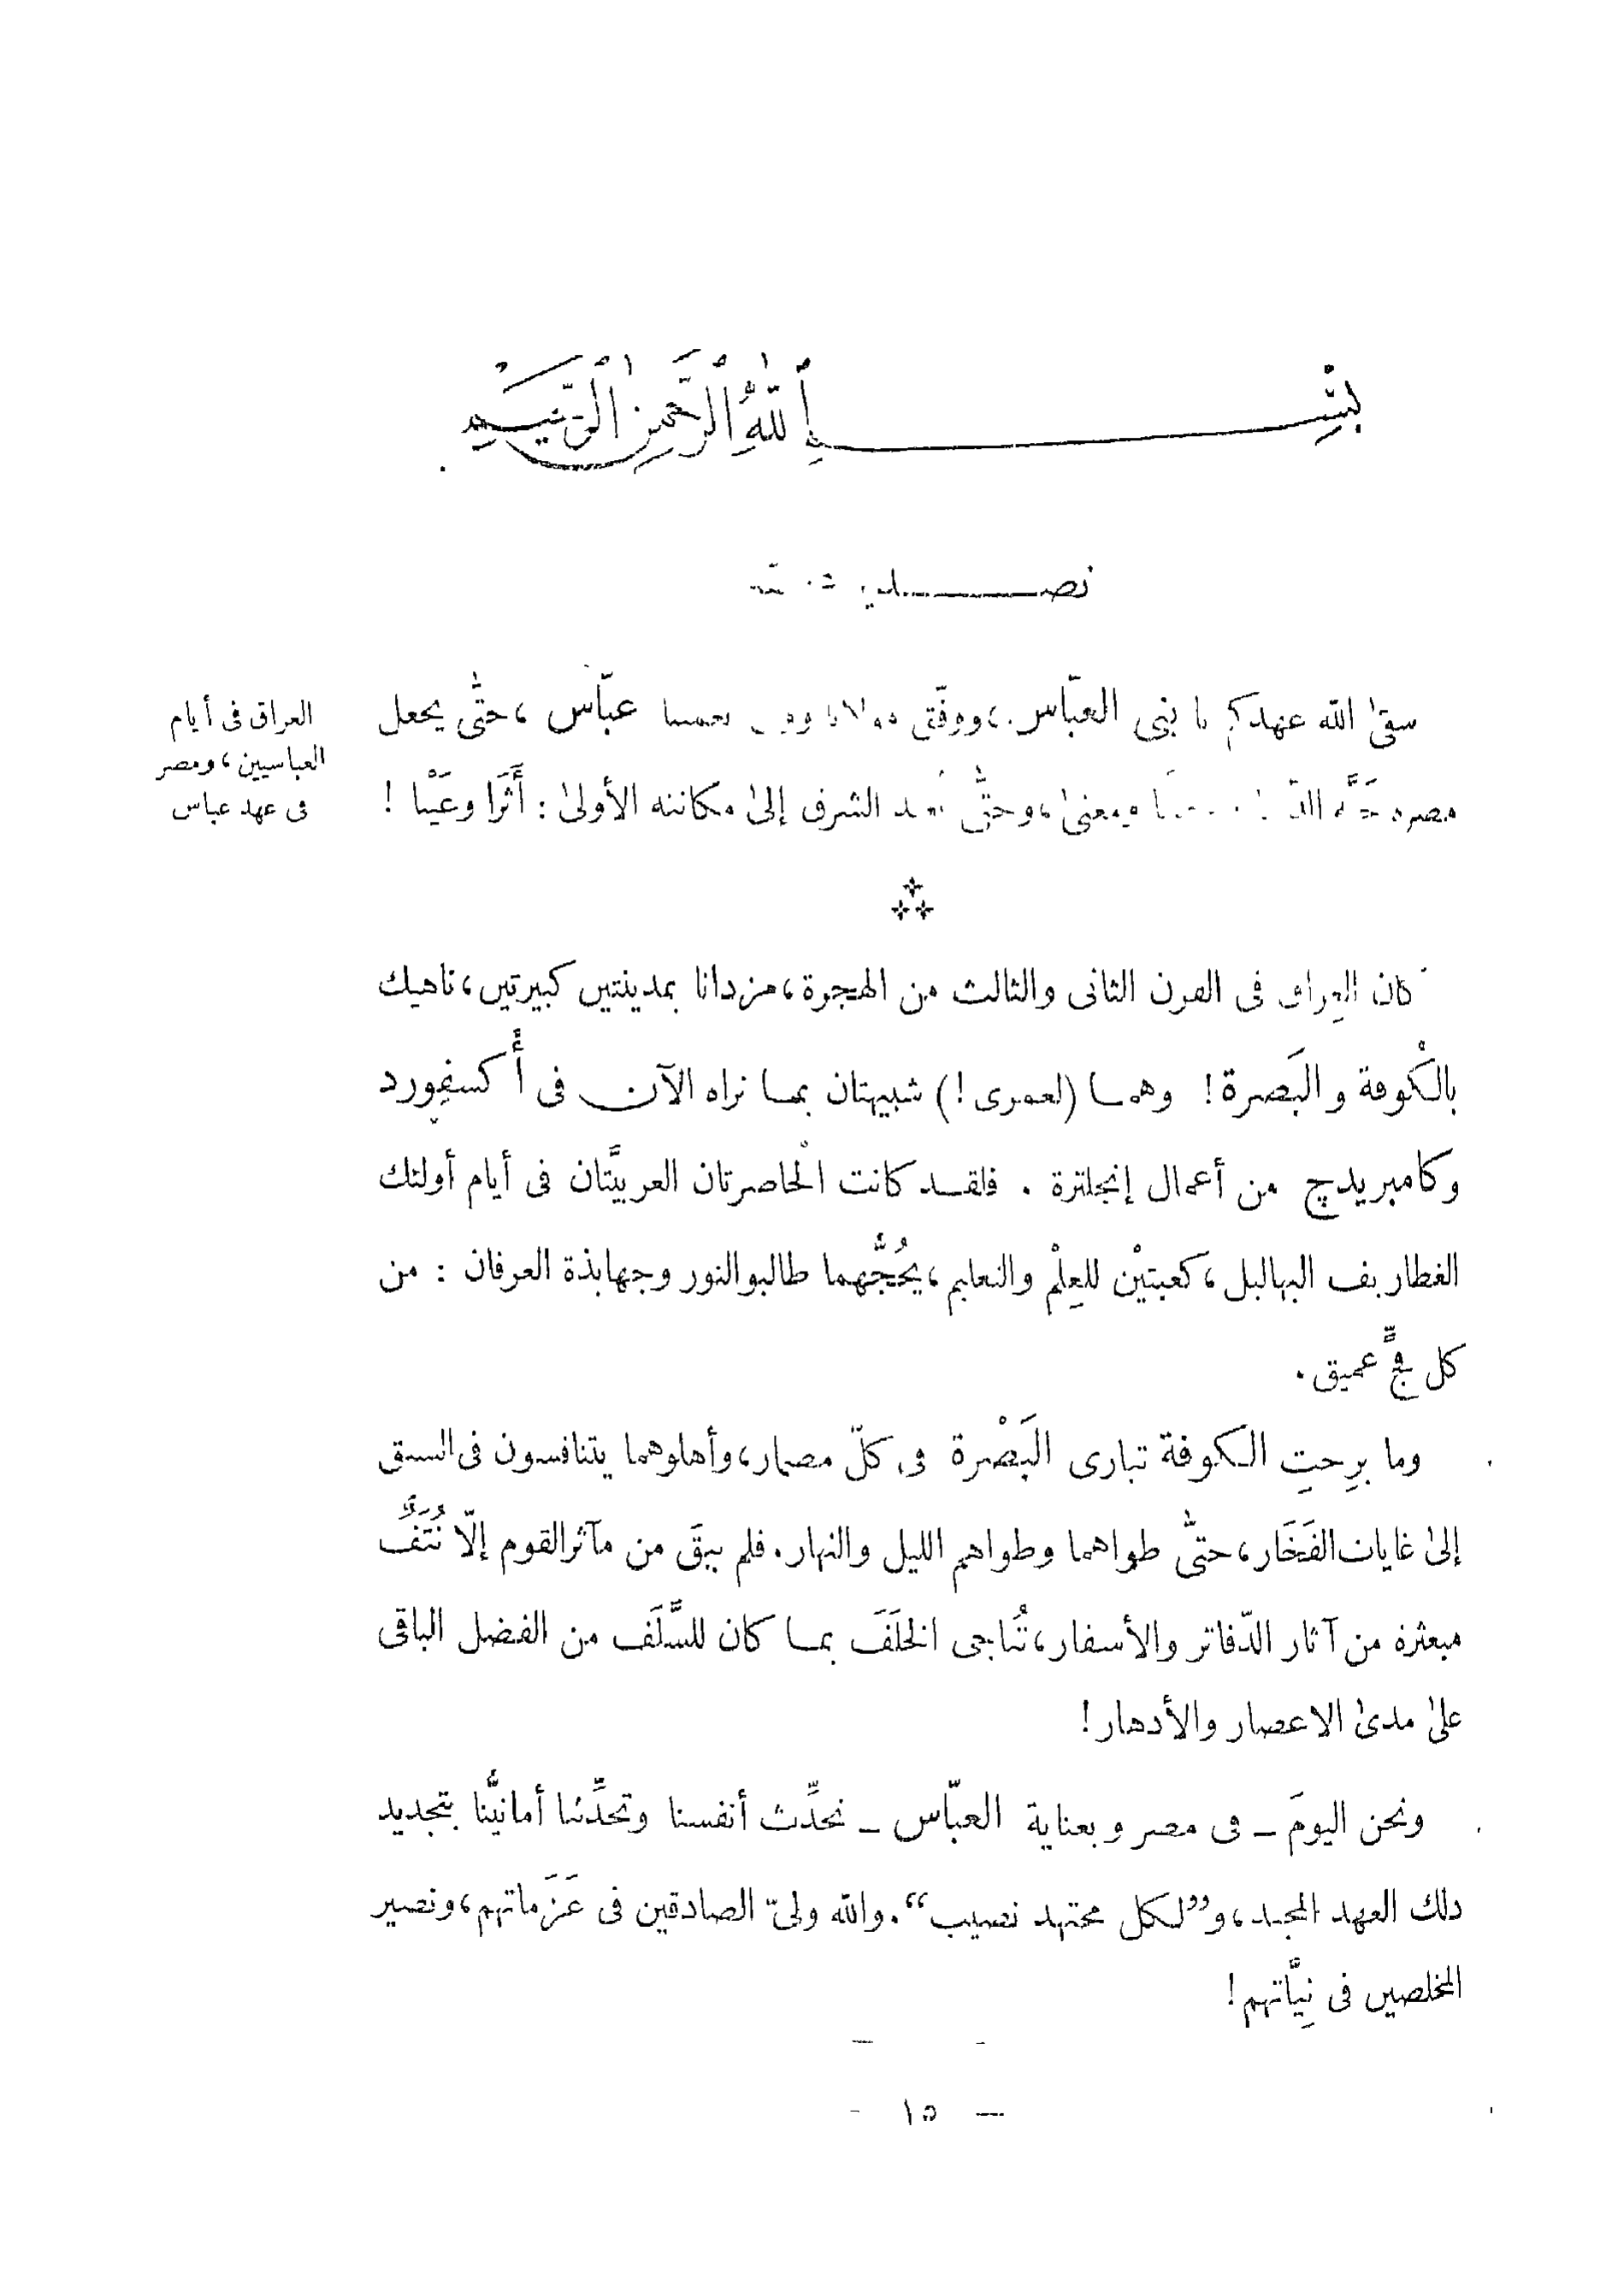 بِسْمِ ٱللَّهِ ٱلرَّحْمَٰنِ ٱلرَّحِيمِ
سقىٰ الله عهدكم يا بنى العبّاس، ووفّق عبّاس، حتّى يجعل
العراق فى أيام
العباسيين، ومصر
فى عهد عباس
مصره ومعنىٰ، وحتّى الشرق إلىٰ مكانته الأولىٰ: أَثَرًا وعَيْنا!
كان العراق فى القرن الثانى والثالث من الهجرة، مزدانا بمدينتين كبيرتين، ناهيك
بالْكوفة والبَصرة! وهما (لعمرى!) شبيهتان بما نراه الآن فى أُكسفورد
وكامبريدچ من أعمال إنجلترة. فلقد كانت الْحاضرتان العربيَّتان فى أيام أولئك
الغطاريف البهاليل، كعبتيْن للعِلْم والتعليم، يحُجُّهما طالبو النور وجهابذة العرفان: من
كل فجٍّ عميق.
وما برِحتِ الكوفة تبارى البَصْرة فى كلّ مضمار، وأهلوهما يتنافسون فى السبق
إلىٰ غايات الفَخَار، حتّىٰ طواهما وطواهم الليل والنهار. فلم يبقَ من مآثر القوم إلّا نُتَفٌ
مبعثرة من آثار الدّفاتر والأسفار، تُناجى الخلَفَ بما كان للسَّلَف من الفضل الباقى
علىٰ مدىٰ الاعصار والأدهار!
ونحن اليومَ – فى مصر وبعناية العبّاس – نحدِّث أنفسنا وتحدِّثنا أمانيُّنا بتجديد
ذلك العهد المجيد، و”لكل مجتهد نصيب“. والله ولىّ الصادقين فى عَزَماتهم، ونصير
المخلصين فى نِيَّاتهم!
– ١٥ –